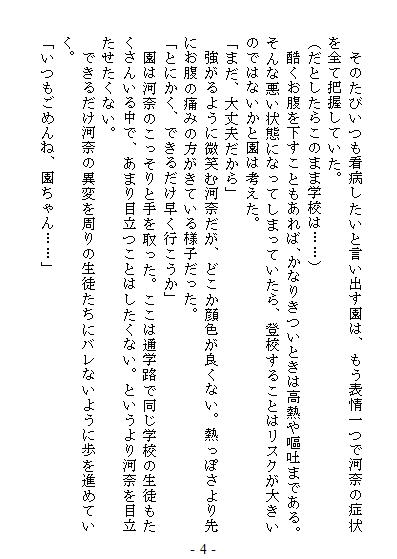 そのたびいつも看病したいと言い出す園は、もう表情一つで河奈の症状
を全て把握していた。
（だとしたらこのまま学校は……）
酷くお腹を下すこともあれば、かなりきついときは高熱や嘔吐まである。
そんな悪い状態になってしまっていたら、登校することはリスクが大きい
のではないかと園は考えた。
「まだ、大丈夫だから」
強がるように微笑む河奈だが、どこか顔色が良くない。熱っぽさより先
にお腹の痛みの方がきている様子だった。
「とにかく、できるだけ早く行こうか」
園は河奈のこっそりと手を取った。ここは通学路で同じ学校の生徒もた
くさんいる中で、あまり目立つことはしたくない。というより河奈を目立
たせたくない。
できるだけ河奈の異変を周りの生徒たちにバレないように歩を進めてい
く。
「いつもごめんね、園ちゃん……」
- 4 -